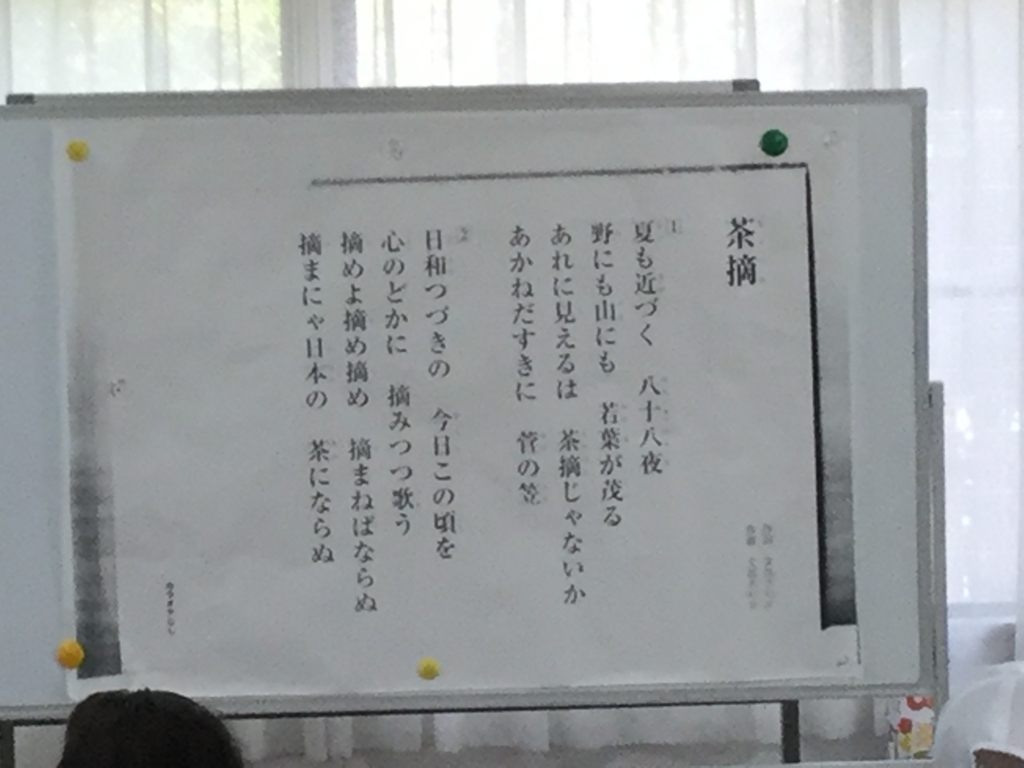 茶摘
1
夏も近づく　八十八夜
野にも山にも　若葉が茂る
あれに見えるは　茶摘じゃないか
あかねだすきに　菅の笠
2
日和つづきの　今日この頃を
心のどかに　摘みつつ歌う
摘めよ摘め摘め　摘まねばならぬ
摘まにゃ日本の　茶にならぬ